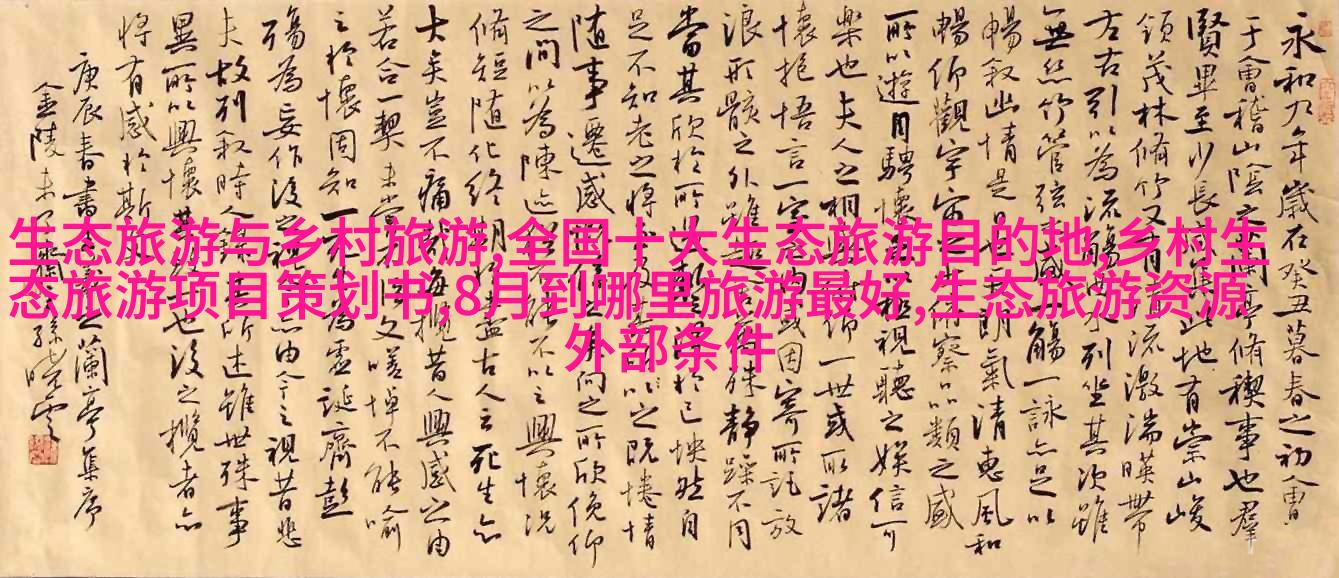 生态旅游与乡村旅游,全国十大生态旅游目的地,乡村生
态旅游项目策划书,8月到哪里旅游最好,生态旅游资源
外部条件
永和九年歲在癸丑暮春之初會
于會稽山陰之蘭亭脩禊事也羣
賢畢至少長咸集此地有崇山峻
領茂林脩竹又有清流激湍暎帶
左右引以為流觴曲水列坐其次雖
無絲竹管弦之盛一觴一詠亦足以
暢叙幽情是日也天朗氣清惠風和
暢仰觀宇宙之大俯察品類之盛
所以遊目騁懷足以極視聽之娱信可
樂也夫人之相與俯仰一世或取諸
懷抱悟言一室之內或因寄所託放
浪形骸之外雖趣舍萬殊靜躁不同
當其欣於所遇暫得於己怏然自
足不知老之將至及其所之既惓情
隨事遷感慨係之矣向之所欣俛仰
之間以為陳迹猶不能不以之興懷況
脩短随化終期於盡古人云死生亦
大矣豈不痛哉每攬昔人興感之由
若合一契未嘗不臨文嗟悼不能喻
之於懷固知一死生為虛誕齊彭
殤為妄作後之視今亦由今之視昔悲
夫故列叙時人錄其所述雖世殊事
異所以興懷其致一也後之攬者亦
將有感於斯文
庚辰春書蘭亭集序
金陵孫曉雲